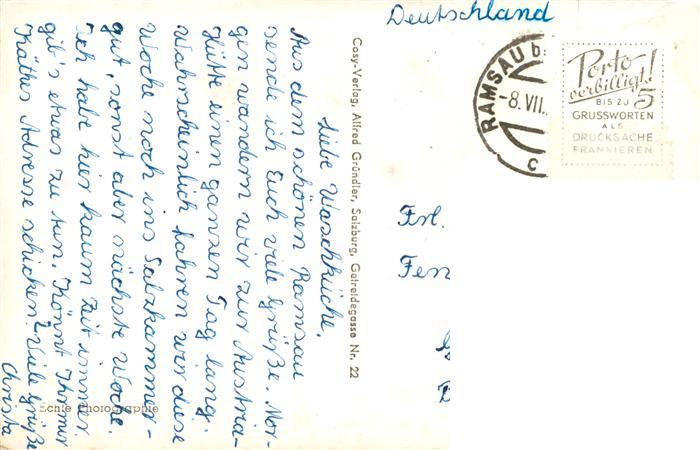 Deutschland
RAMSAU b.
-8. VII.
c
Porto
verbilligt!
BIS ZU 5
GRUSSWORTEN
ALS
DRUCKSACHE
FRANKIEREN
Liebe Waschküche,
Aus dem schönen Ramsau
sende ich Euch viele Grüße. Mor-
gen wandern wir zur Austria-
Hütte einen ganzen Tag lang.
Wahrscheinlich fahren wir diese
Woche noch ins Salzkammer-
gut, sonst aber nächste Woche.
Ich habe hier kaum Zeit immer
gib's etwas zu tun. Könnt Ihr mir
Käthes Adresse schicken? Viele Grüße
Christa
Cosy-Verlag, Alfred Gründler, Salzburg, Getreidegasse Nr. 22
Echte Photographie
Frl.
Fen